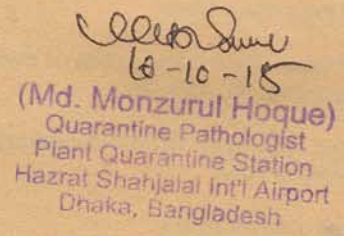 18-10-15
(Md. Monzurul Hoque)
Quarantine Pathologist
Plant Quarantine Station
Hazrat Shahjalal Int'l Airport
Dhaka, Bangladesh